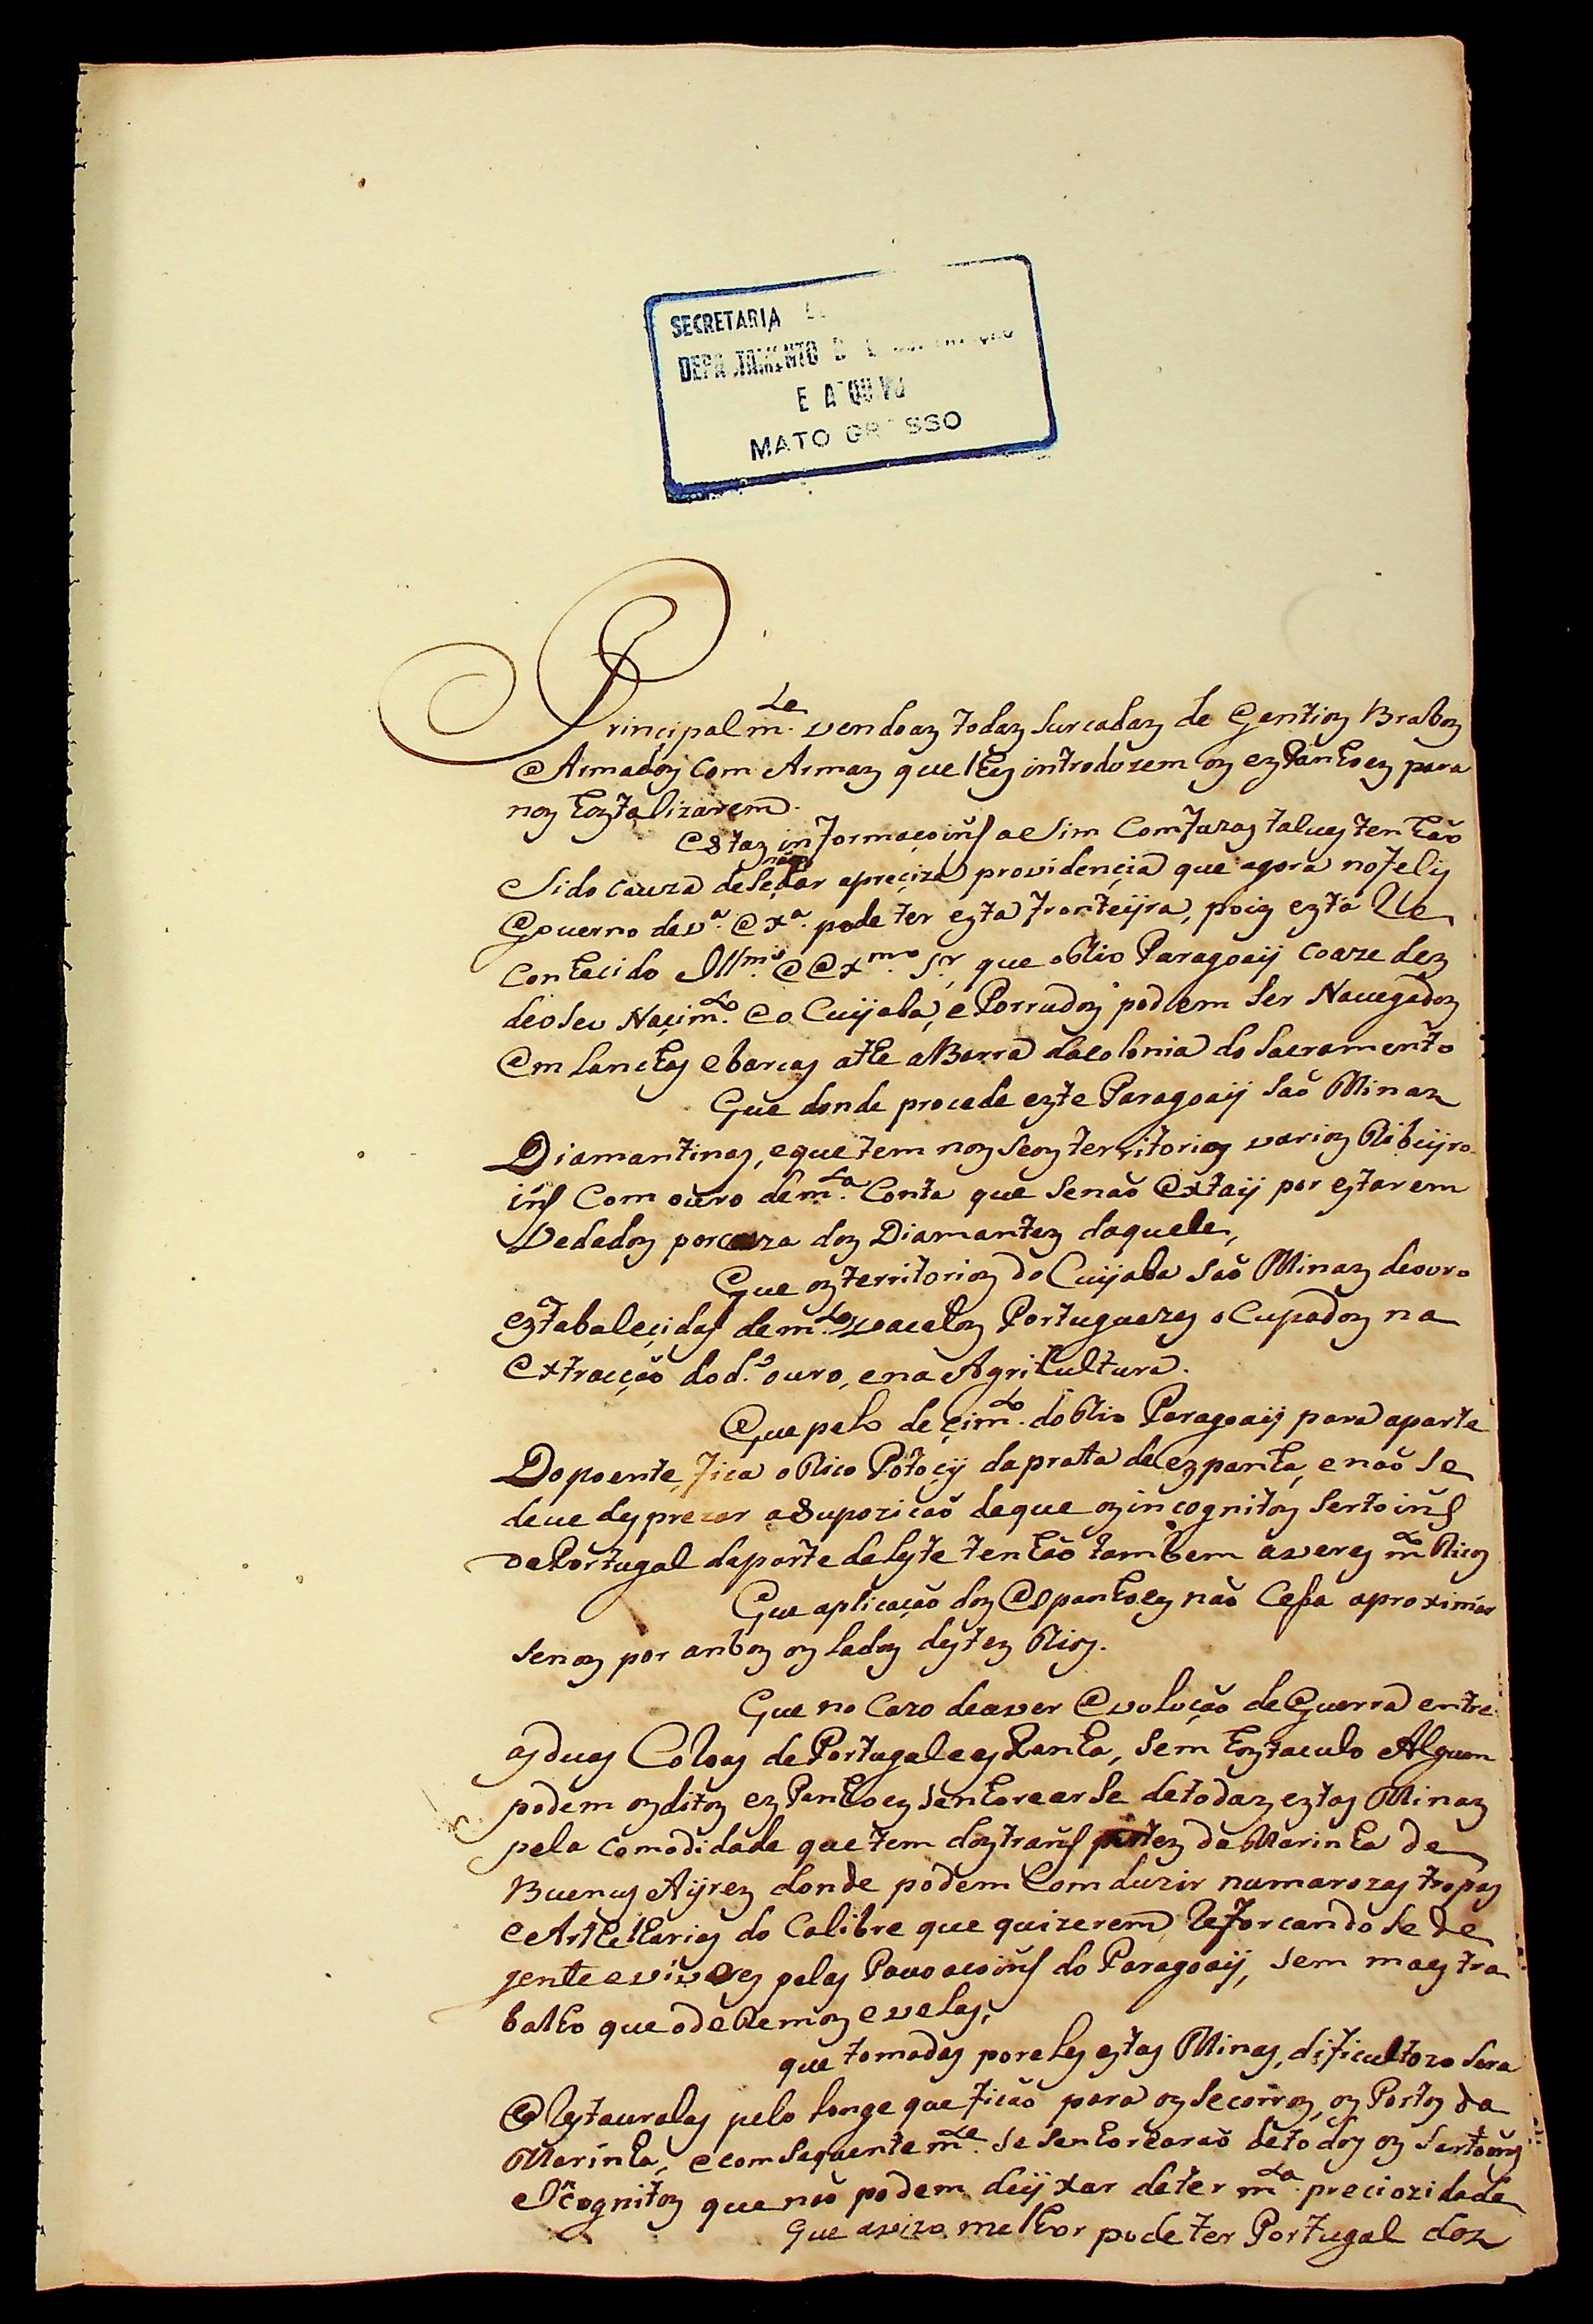 SECRETARIA
DEPARTAMENTO D
E ARQUIVO
MATO GROSSO
Principalm.te vendoas todas surcadas de Gentios Brabos
Armados com Armas que lhes introduzem os espanhoes para
nos hostalizarem.
Estas informaçoins asim comfuzas talves tenhão
sido cauza dese não dar apreciza providencia que agora nofelis
Governo dev.a Ex.a pode ter esta fronteijra, pois está Re
conhecido Ill.mo e Ex.mo S.r que oRio Paragoaij coaze des
deoseu Nacim.to eo Cuijaba, e Porrudos podem ser Navegados
em lanchas ebarcas athe aBarra dacolonia do Sacramento
Que donde procede este Paragoaij são Minas
Diamantinas, eque tem nos seos territorios varios Ribeijro
ins Com ouro dem.ta Conta que senão Extaij por estarem
Vedados porcauza dos Diamantes daquele,
Que os territorios do Cuijaba são Minas deouro
estabalecidas dem.tos vacalos Portuguezes oCupados na
extracção dod.o ouro, ena Agricultura.
Que pelo decim.to do Rio Paragoaij para aparte
Dopoente, fica oRico Potocij daprata deespanha, enão se
deve desprezar aSupozicão deque os incognitos sertoins
dePortugal daparte deleste tenhão tambem averes m.to Ricos
Que aplicacão dos Espanhoes não Cessa aproximar
senos por anbos os lados destes Rios.
Que no cazo deaver Evolução deGuerra entre
as duas Coloas dePortugal eespanha, sem hostaculo Algum
podem os ditos esPanhoes senhorearse detodas estas Minas
pela comodidade quetem dos transportes da Marinha de
Buenos Aijres donde podem comduzir numarozas tropas
e Arthelharias do Calibre que quizerem Reforcandose de
jente eviveres pelas Povoacoins do Paragoaij, sem mais tra
balho que odeRemos evelas;
que tomadas poreles estas Minas, dificultozo sera
Restauralas pelo longe que ficão para os secorros, os Portos da
Marinha, ecomsequentem.te se senhorearão detodos os sertoins
Incognitos que não podem deijxar deter m.ta preciozidade
Que avizo melhor pode ter Portugal dos